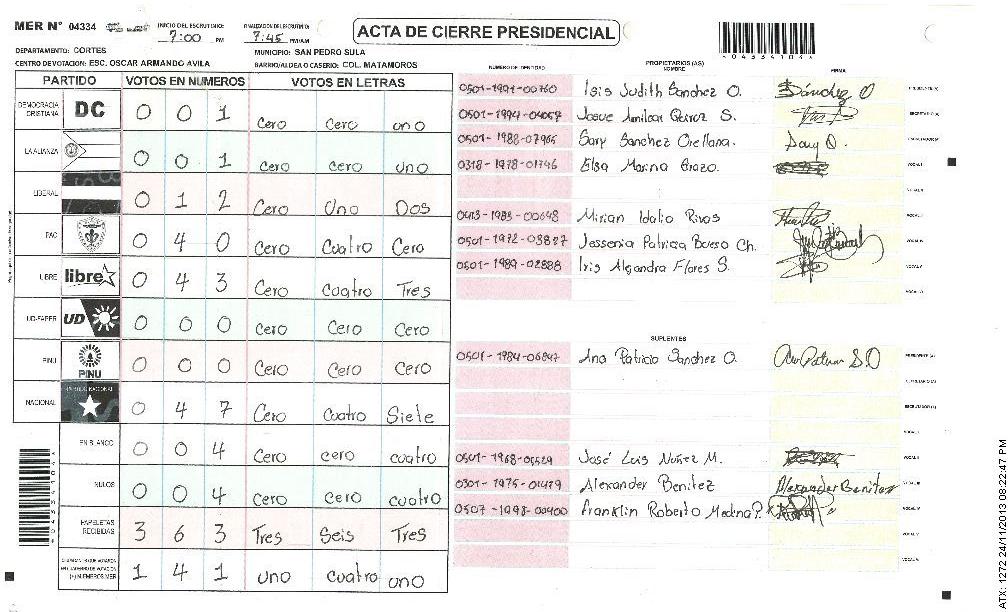 MER N° 04334 INICIO DEL ESCRUTINIO: 7:00 PM FINALIZACION ESCRUTINIO: 7:45 PM/AM ACTA DE CIERRE PRESIDENCIAL
DEPARTAMENTO: CORTES MUNICIPIO: SAN PEDRO SULA
CENTRO DE VOTACION: ESC. OSCAR ARMANDO AVILA BARRIO/ALDEA O CASERIO: COL. MATAMOROS
*04334104*
PARTIDO VOTOS EN NUMEROS VOTOS EN LETRAS
DEMOCRACIA CRISTIANA DC 0 0 1 Cero Cero uno
LA ALIANZA 0 0 1 cero cero Uno
LIBERAL 0 1 2 Cero Uno Dos
PAC 0 4 0 Cero Cuatro Cero
LIBRE libre 0 4 3 Cero cuatro Tres
UD-FAPER UD 0 0 0 Cero Cero Cero
PINU PINU 0 0 0 Cero Cero Cero
NACIONAL PARTIDO NACIONAL 0 4 7 Cero Cuatro Siete
EN BLANCO 0 0 4 Cero cero cuatro
NULOS 0 0 4 cero cero cuatro
PAPELETAS RECIBIDAS 3 6 3 Tres Seis Tres
1 4 1 uno cuatro uno
NUMERO DE IDENTIDAD PROPIETARIOS (AS) NOMBRE FIRMA
0501-1991-00760 Isis Judith Sanchez O. Sánchez O
0501-1994-04057 Josue Amilcar S.
0501-1988-07965 Sary Sanchez Orellana. Sary O.
0318-1978-01746 Elsa Marina
0413-1983-00648 Mirian Idalia Rivas
0501-1972-03827 Jessenia Patricia Bueso Ch.
0501-1989-02888 Iris Alejandra Flores S.
SUPLENTES
0501-1984-06847 Ana Patricia Sanchez O.
José Luis Nuñez M.
0301-1975-01479 Alexander Benitez Alexander Benitez
0507-1998-00400 Franklin Roberto Medina P.
*04334104*
ATX: 1272 24/11/2013 08:22:47 PM